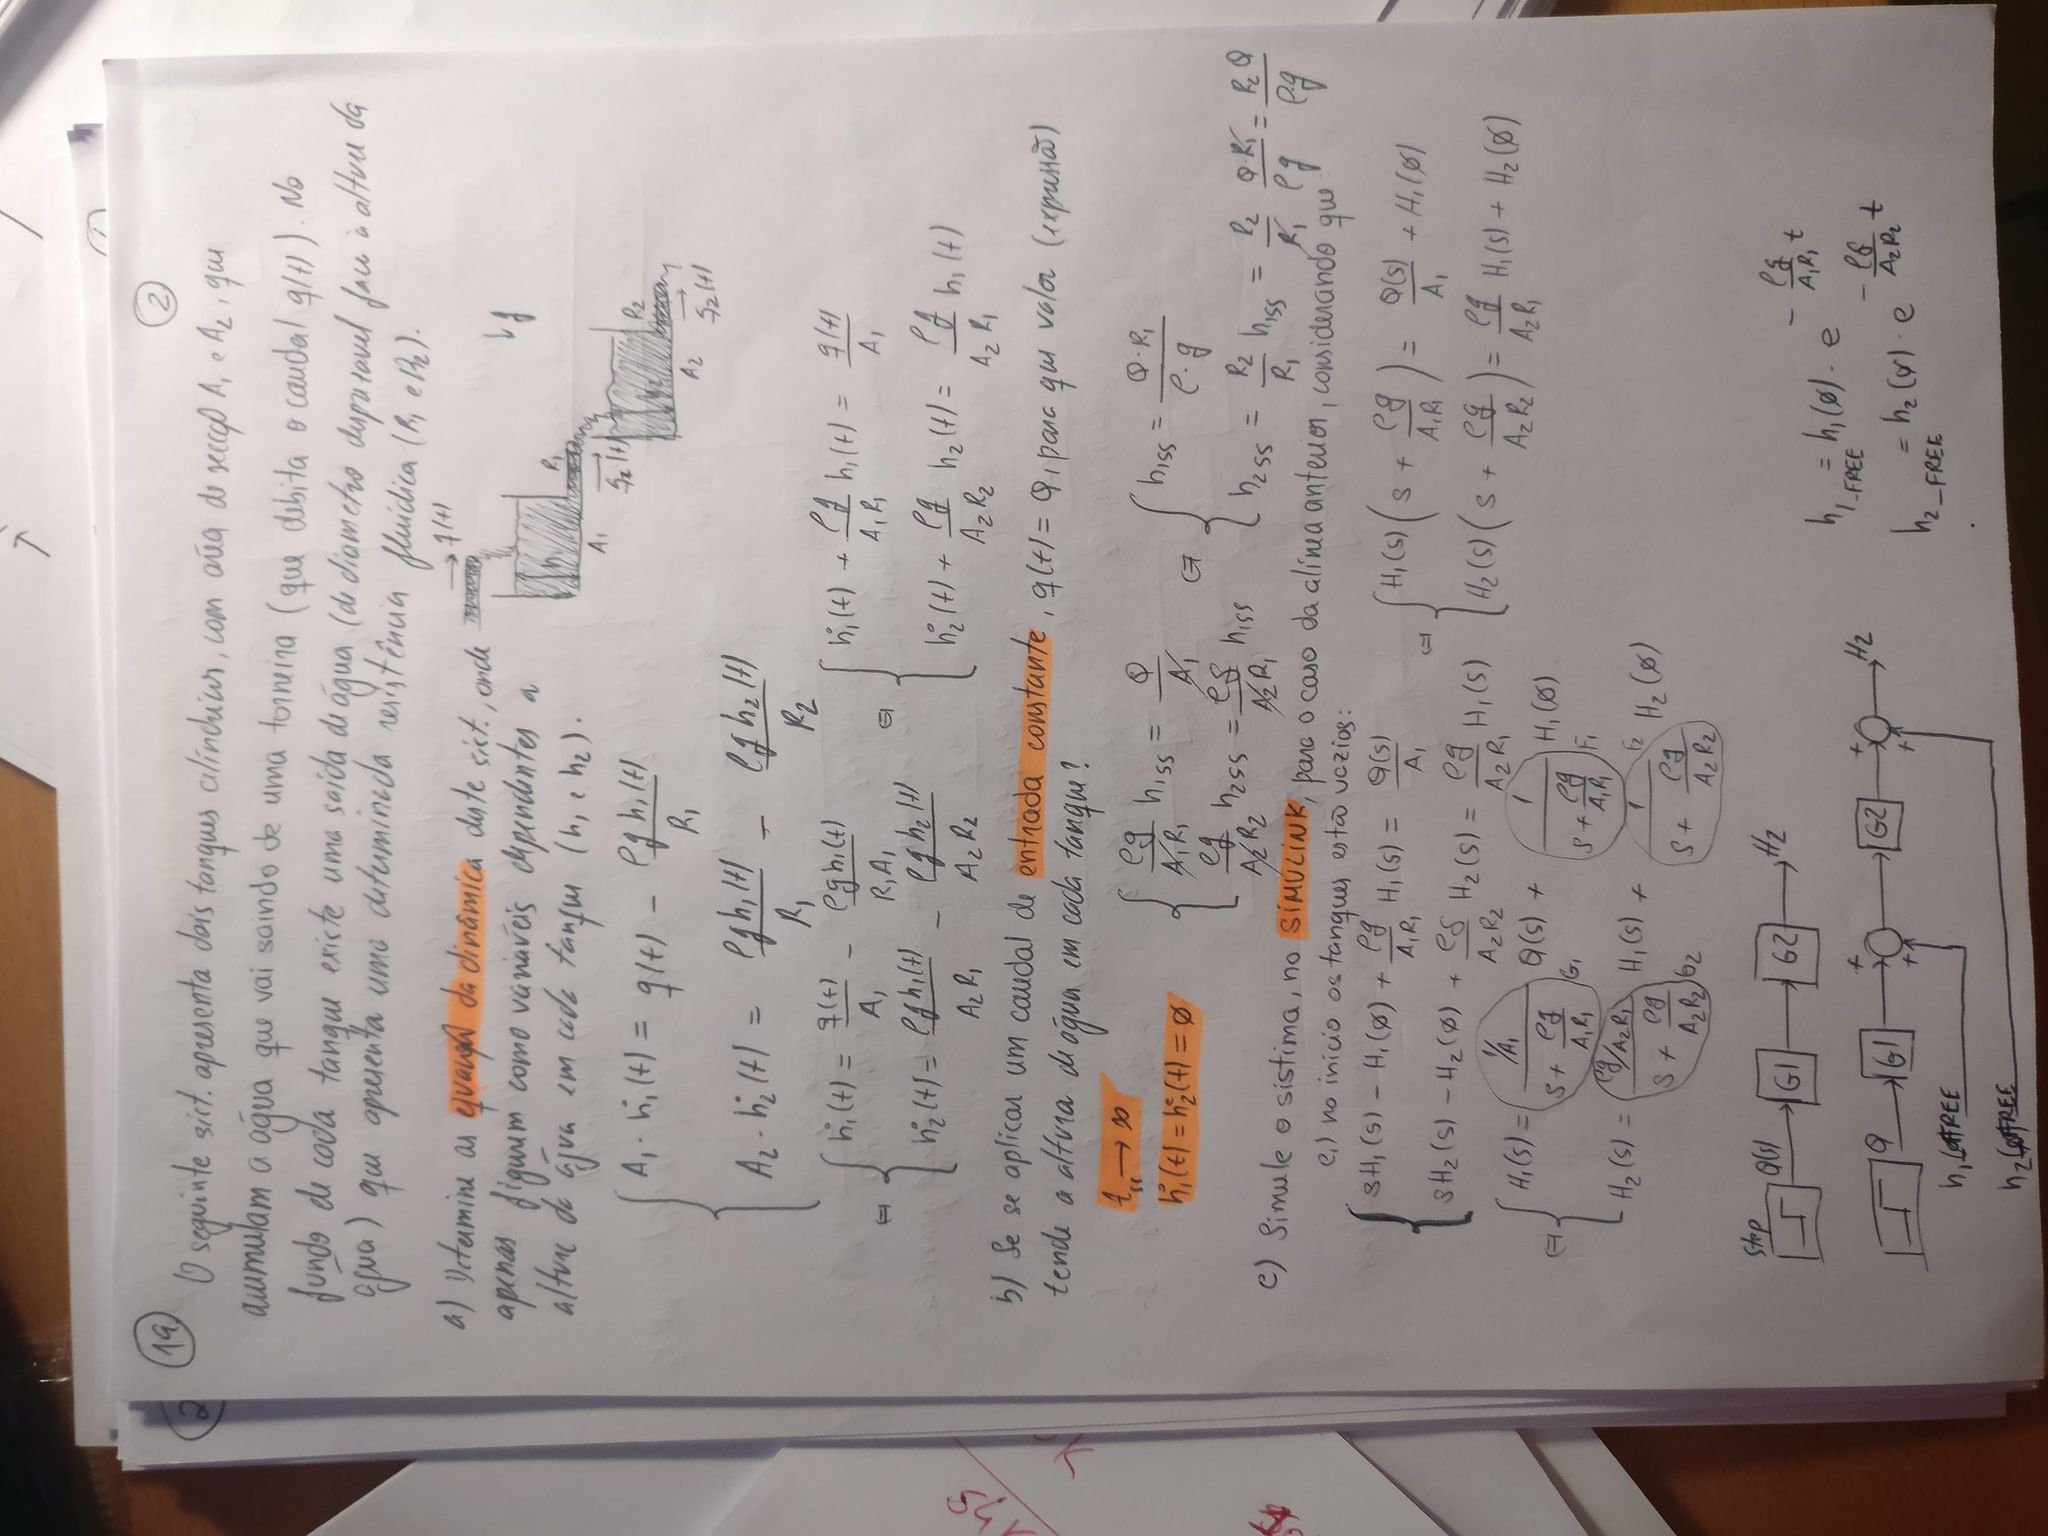 19
2
O seguinte sist. apresenta dois tanques cilíndricos, com área de secção A₁ e A₂, que
acumulam a água que vai saindo de uma torneira (que debita o caudal q(t)). No
fundo de cada tanque existe uma saída de água (de diametro desprezavel face à altura da
água) que apresenta uma determinada resistência fluídica (R₁ e R₂).
a) Determine as equações da dinâmica deste sist., onde
apenas figurem como variavéis dependentes a
altura da água em cada tanque (h₁ e h₂).
→ q(t)
↓g
R₁
A₁
q₂(t)
R₂
A₂
q₂(t)
A₁·ḣ₁(t) = q(t) − ρgh₁(t)/R₁
A₂·ḣ₂(t) = ρgh₁(t)/R₁ − ρgh₂(t)/R₂
⇔ ḣ₁(t) = q(t)/A₁ − ρgh₁(t)/R₁A₁ ⇔ ḣ₁(t) + ρg/A₁R₁ h₁(t) = q(t)/A₁
ḣ₂(t) = ρgh₁(t)/A₂R₁ − ρgh₂(t)/A₂R₂ ḣ₂(t) + ρg/A₂R₂ h₂(t) = ρg/A₂R₁ h₁(t)
b) Se se aplicar um caudal de entrada constante, q(t) = Q, para que valor (expressão)
tende a altura de água em cada tanque?
tss → ∞
ḣ₁(t) = ḣ₂(t) = ∅
ρg/A₁R₁ h₁ss = Q/A₁ ⇔ h₁ss = Q·R₁/ρ·g
ρg/A₂R₂ h₂ss = ρg/A₂R₁ h₁ss h₂ss = R₂/R₁ h₁ss = R₂/R₁ Q·R₁/ρg = R₂Q/ρg
c) Simule o sistima, no SIMULINK, para o caso da alínea anterior, considerando que:
c₁) no início os tanques estão vazios:
sH₁(s) − H₁(∅) + ρg/A₁R₁ H₁(s) = Q(s)/A₁ ⇔ H₁(s)(s + ρg/A₁R₁) = Q(s)/A₁ + H₁(∅)
sH₂(s) − H₂(∅) + ρg/A₂R₂ H₂(s) = ρg/A₂R₁ H₁(s) H₂(s)(s + ρg/A₂R₂) = ρg/A₂R₁ H₁(s) + H₂(∅)
⇔ H₁(s) = (1/A₁)/(s + ρg/A₁R₁) G₁ Q(s) + 1/(s + ρg/A₁R₁) F₁ H₁(∅)
H₂(s) = (ρg/A₂R₁)/(s + ρg/A₂R₂) G₂ H₁(s) + 1/(s + ρg/A₂R₂) F₂ H₂(∅)
Step Q(s) G1 G2 H₂
Q G1 + + G2 + + H₂
h₁ FREE
h₂ FREE
h₁_FREE = h₁(∅)·e^(−ρg/A₁R₁ t)
h₂_FREE = h₂(∅)·e^(−ρg/A₂R₂ t)